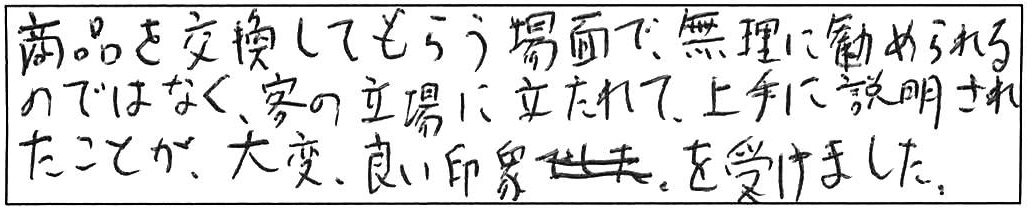 商品を交換してもらう場面で、無理に勧められる
のではなく、客の立場に立たれて、上手に説明され
たことが、大変、良い印象でした。を受けました。